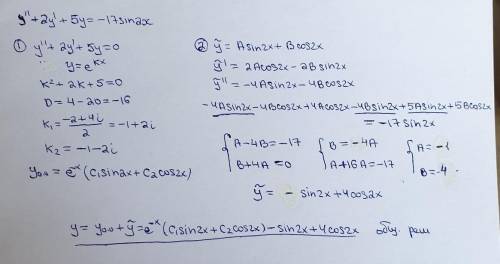 y''+2y'+5y=-17sin2x
① y''+2y'+5y=0
y=e^{kx}
k²+2k+5=0
D=4-20=-16
k₁=\frac{-2+4i}{2}=-1+2i
k₂=-1-2i
y_{0.0}=e^{-x}(C₁sin2x+C₂cos2x)
② ỹ=Asin2x+Bcos2x
ỹ'=2Acos2x-2Bsin2x
ỹ''=-4Asin2x-4Bcos2x
-4Asin2x-4Bcos2x+4Acos2x-4Bsin2x+5Asin2x+5Bcos2x
=-17sin2x
{A-4B=-17 {B=-4A {A=-1
{B+4A=0 {A+16A=-17 {B=4.
ỹ=-sin2x+4cos2x
y=y_{0.0}+ỹ=e^{-x}(C₁sin2x+C₂cos2x)-sin2x+4cos2x общ. реш